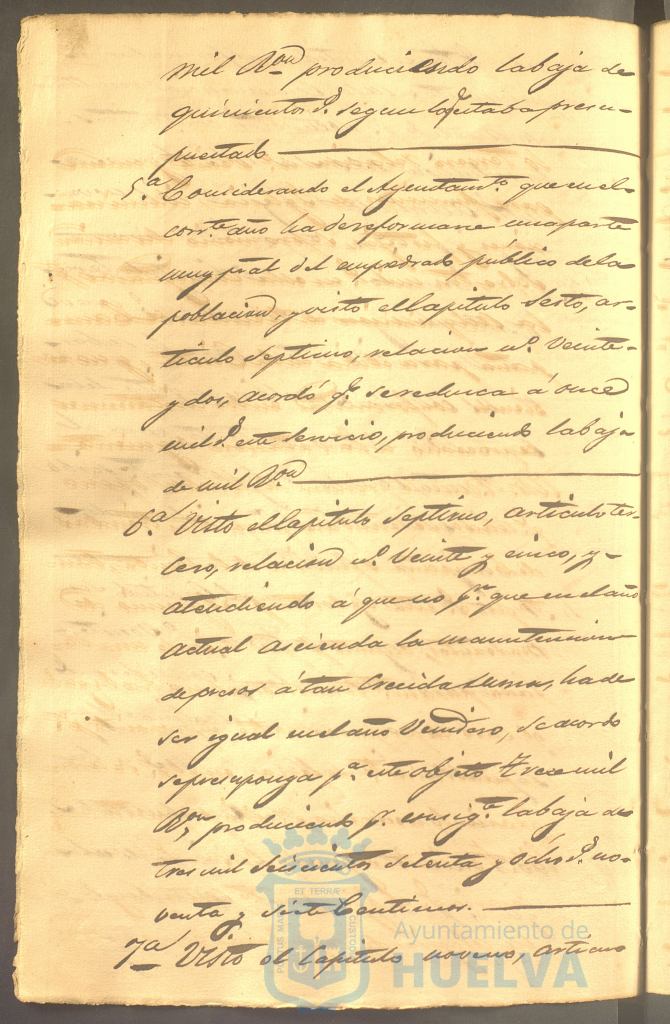 mil Ron produciendo la baja de
quinientos rs. segun lo qe. estaba presu-
puestado
5.ª Considerando el Ayuntamto. que en el
corrte. año ha de reformarse una parte
muy pral del empedrado público de la
poblacion, y visto el Capitulo Sesto, ar-
ticulo Septimo, relacion nº. Veinte
y dos, acordó qe. se reduzca á once
mil rs. este servicio, produciendo la baja
de mil Ron
6.ª Visto el Capitulo Septimo, articulo ter-
cero, relacion nº. Veinte y cinco, y
atendiendo á que no pr. que en el año
actual ascienda la manutencion
de presos á tan crecida suma, ha de
ser igual en el año Venidero, se acordo
se presuponga pa. este objeto trece mil
Ron, produciendo pr. consigte. la baja de
tres mil Seiscientos setenta y ocho rs. no-
venta y siete Centimos.
7ª Visto el Capitulo noveno, articulo
PORTUS MARIS ET TERRÆ CUSTODIA
Ayuntamiento de
HUELVA